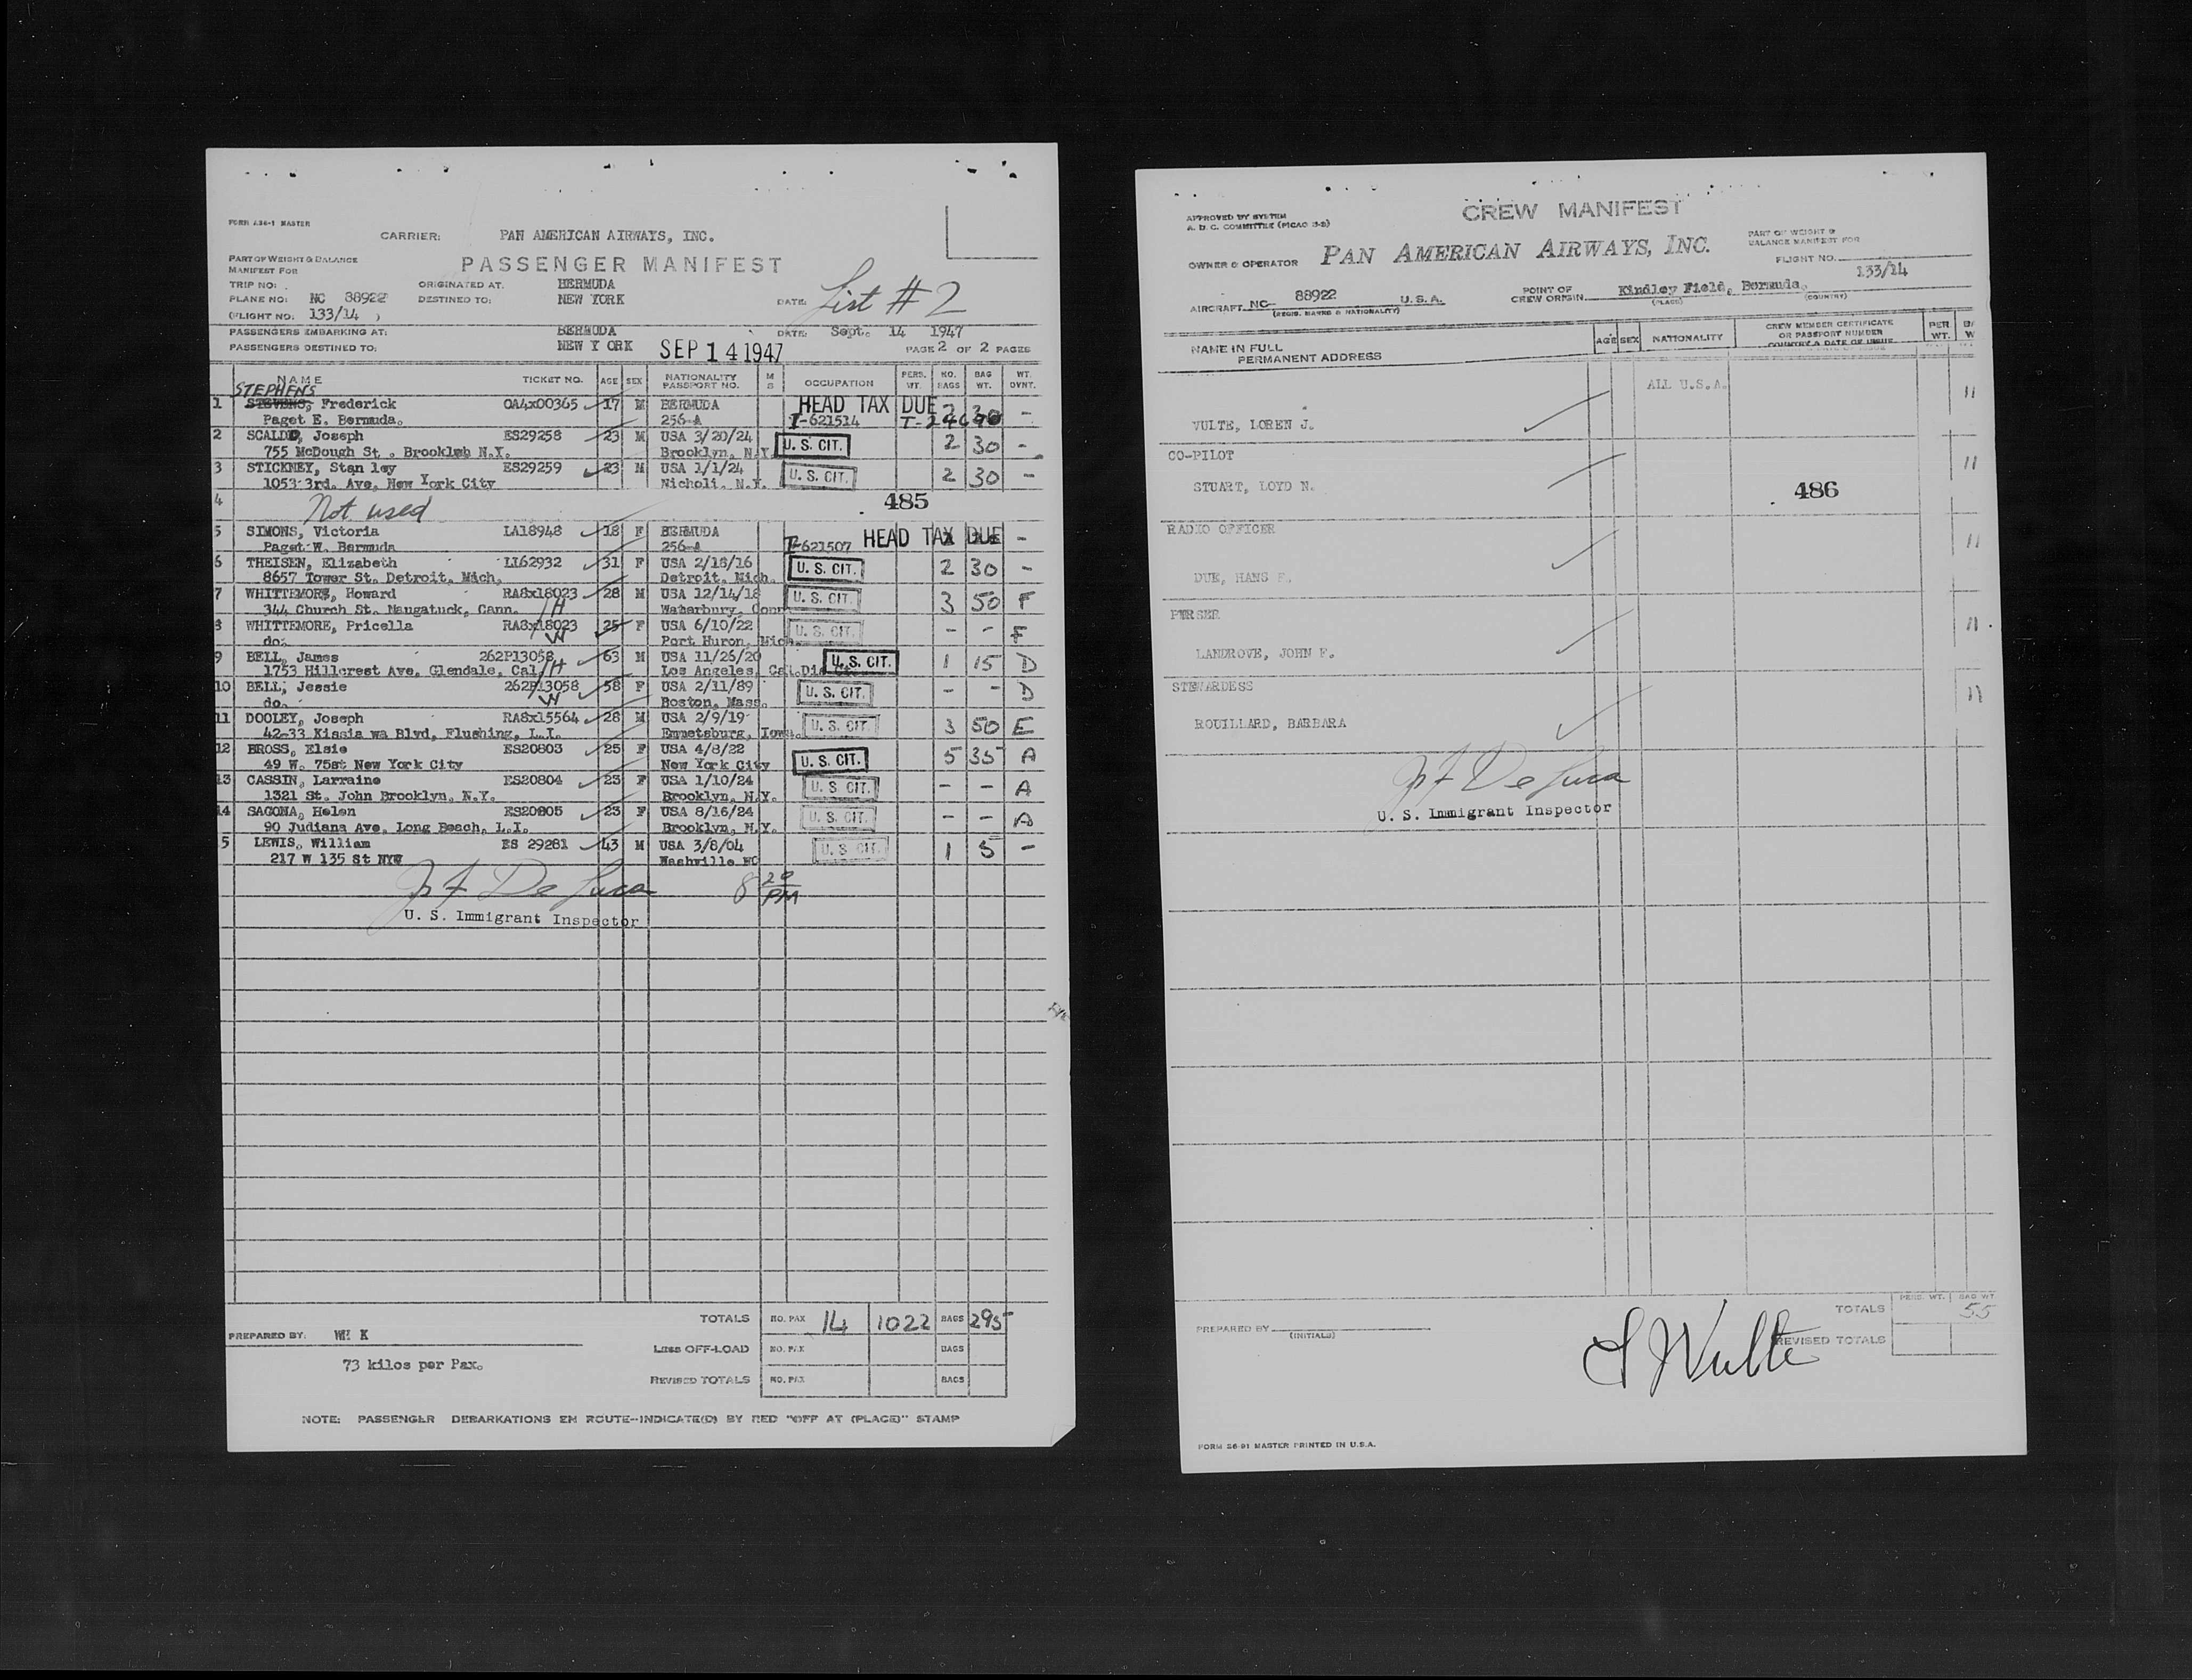 FORM A36-1 MASTER
CARRIER: PAN AMERICAN AIRWAYS, INC.
PART OF WEIGHT & BALANCE
MANIFEST FOR
PASSENGER MANIFEST
TRIP NO: ORIGINATED AT: BERMUDA
PLANE NO: NC 88922 DESTINED TO: NEW YORK DATE: List #2
(FLIGHT NO: 133/14 )
PASSENGERS EMBARKING AT: BERMUDA DATE: Sept. 14 1947
PASSENGERS DESTINED TO: NEW Y ORK SEP 14 1947 PAGE 2 OF 2 PAGES
NAME TICKET NO. AGE SEX NATIONALITY PASSPORT NO. M S OCCUPATION PERS. WT. NO. BAGS BAG WT. WT. DVNT.
STEPHENS
1 STEVENS, Frederick OA4x00365 17 M BERMUDA HEAD TAX DUE 2 30 -
Paget E. Bermuda. 256-A I-621514
2 SCALDO, Joseph ES29258 23 M USA 3/20/24 U. S. CIT. 2 30 -
755 McDough St . Brooklmb N.Y. Brooklyn, N.Y.
3 STICKNEY, Stan ley ES29259 23 M USA 1/1/24 U. S. CIT. 2 30 -
1053 3rd. Ave, New York City Nicholi, N.Y.
4 Not used 485
5 SIMONS, Victoria LA18948 18 F BERMUDA HEAD TAX DUE -
Paget W. Bermuda 256-A I-621507
6 THEISEN, Elizabeth LI62932 31 F USA 2/18/16 U. S. CIT. 2 30 -
8657 Tower St. Detroit, Mich, Detroit, Mich.
7 WHITTEMORE, Howard RA8x18023 28 M USA 12/14/18 U. S. CIT. 3 50 F
344 Church St. Naugatuck, Cann. /H Waterbury, Conn
8 WHITTEMORE, Pricella RA8x18023 25 F USA 6/10/22 U. S. CIT. - - F
do. /W Port Huron, Mich.
9 BELL, James 262P13058 63 M USA 11/26/20 U. S. CIT. 1 15 D
1753 Hillcrest Ave, Glendale, Cal /H Los Angeles, Cal.Dis Ct.
10 BELL, Jessie 262P13058 58 F USA 2/11/89 U. S. CIT. - - D
do. /W Boston, Mass.
11 DOOLEY, Joseph RA8x15564 28 M USA 2/9/19 U. S. CIT. 3 50 E
42-33 Kissia wa Blvd, Flushing, L.I. Emmetsburg, Iowa.
12 BROSS, Elsie ES20803 25 F USA 4/8/22 U. S. CIT. 5 35 A
49 W. 75st New York City New York City
13 CASSIN, Larraine ES20804 23 F USA 1/10/24 U. S. CIT. - - A
1321 St. John Brooklyn, N.Y. Brooklyn, N.Y.
14 SAGONA, Helen ES20805 23 F USA 8/16/24 U. S. CIT. - - A
90 Judiana Ave, Long Beach, L.I. Brooklyn, N.Y.
5 LEWIS, William ES 29281 43 M USA 3/8/04 U. S. CIT. 1 5 -
217 W 135 St NYW Nashville NC
De Luca 8 20 PM
U. S. Immigrant Inspector
TOTALS NO. PAX 14 1022 BAGS 295
PREPARED BY: WH K
Less OFF-LOAD NO. PAX BAGS
73 kilos per Pax.
REVISED TOTALS NO. PAX BAGS
NOTE: PASSENGER DEBARKATIONS EN ROUTE--INDICATE(D) BY RED "OFF AT (PLACE)" STAMP
APPROVED BY SYSTEM
A. D. C. COMMITTEE (PICAO 3-2)
CREW MANIFEST
OWNER & OPERATOR PAN AMERICAN AIRWAYS, INC.
PART OF WEIGHT &
BALANCE MANIFEST FOR
FLIGHT NO. 133/14
AIRCRAFT NC 88922 U.S.A. POINT OF CREW ORIGIN Kindley Field, Bermuda.
(REGIS. MARKS & NATIONALITY) (PLACE) (COUNTRY)
NAME IN FULL
PERMANENT ADDRESS
AGE SEX NATIONALITY CREW MEMBER CERTIFICATE OR PASSPORT NUMBER COUNTRY & DATE OF ISSUE PER WT.
ALL U.S.A. 11
VULTE, LOREN J.
CO-PILOT 11
STUART, LOYD N. 486
RADIO OFFICER 11
DUE, HANS F.
PURSER 11
LANDROVE, JOHN F.
STEWARDESS 11
ROUILLARD, BARBARA
De Luca
U. S. Immigrant Inspector
PERS. WT. BAG WT
TOTALS 55
PREPARED BY
(INITIALS)
REVISED TOTALS
L Vulte
FORM 36-91 MASTER PRINTED IN U.S.A.